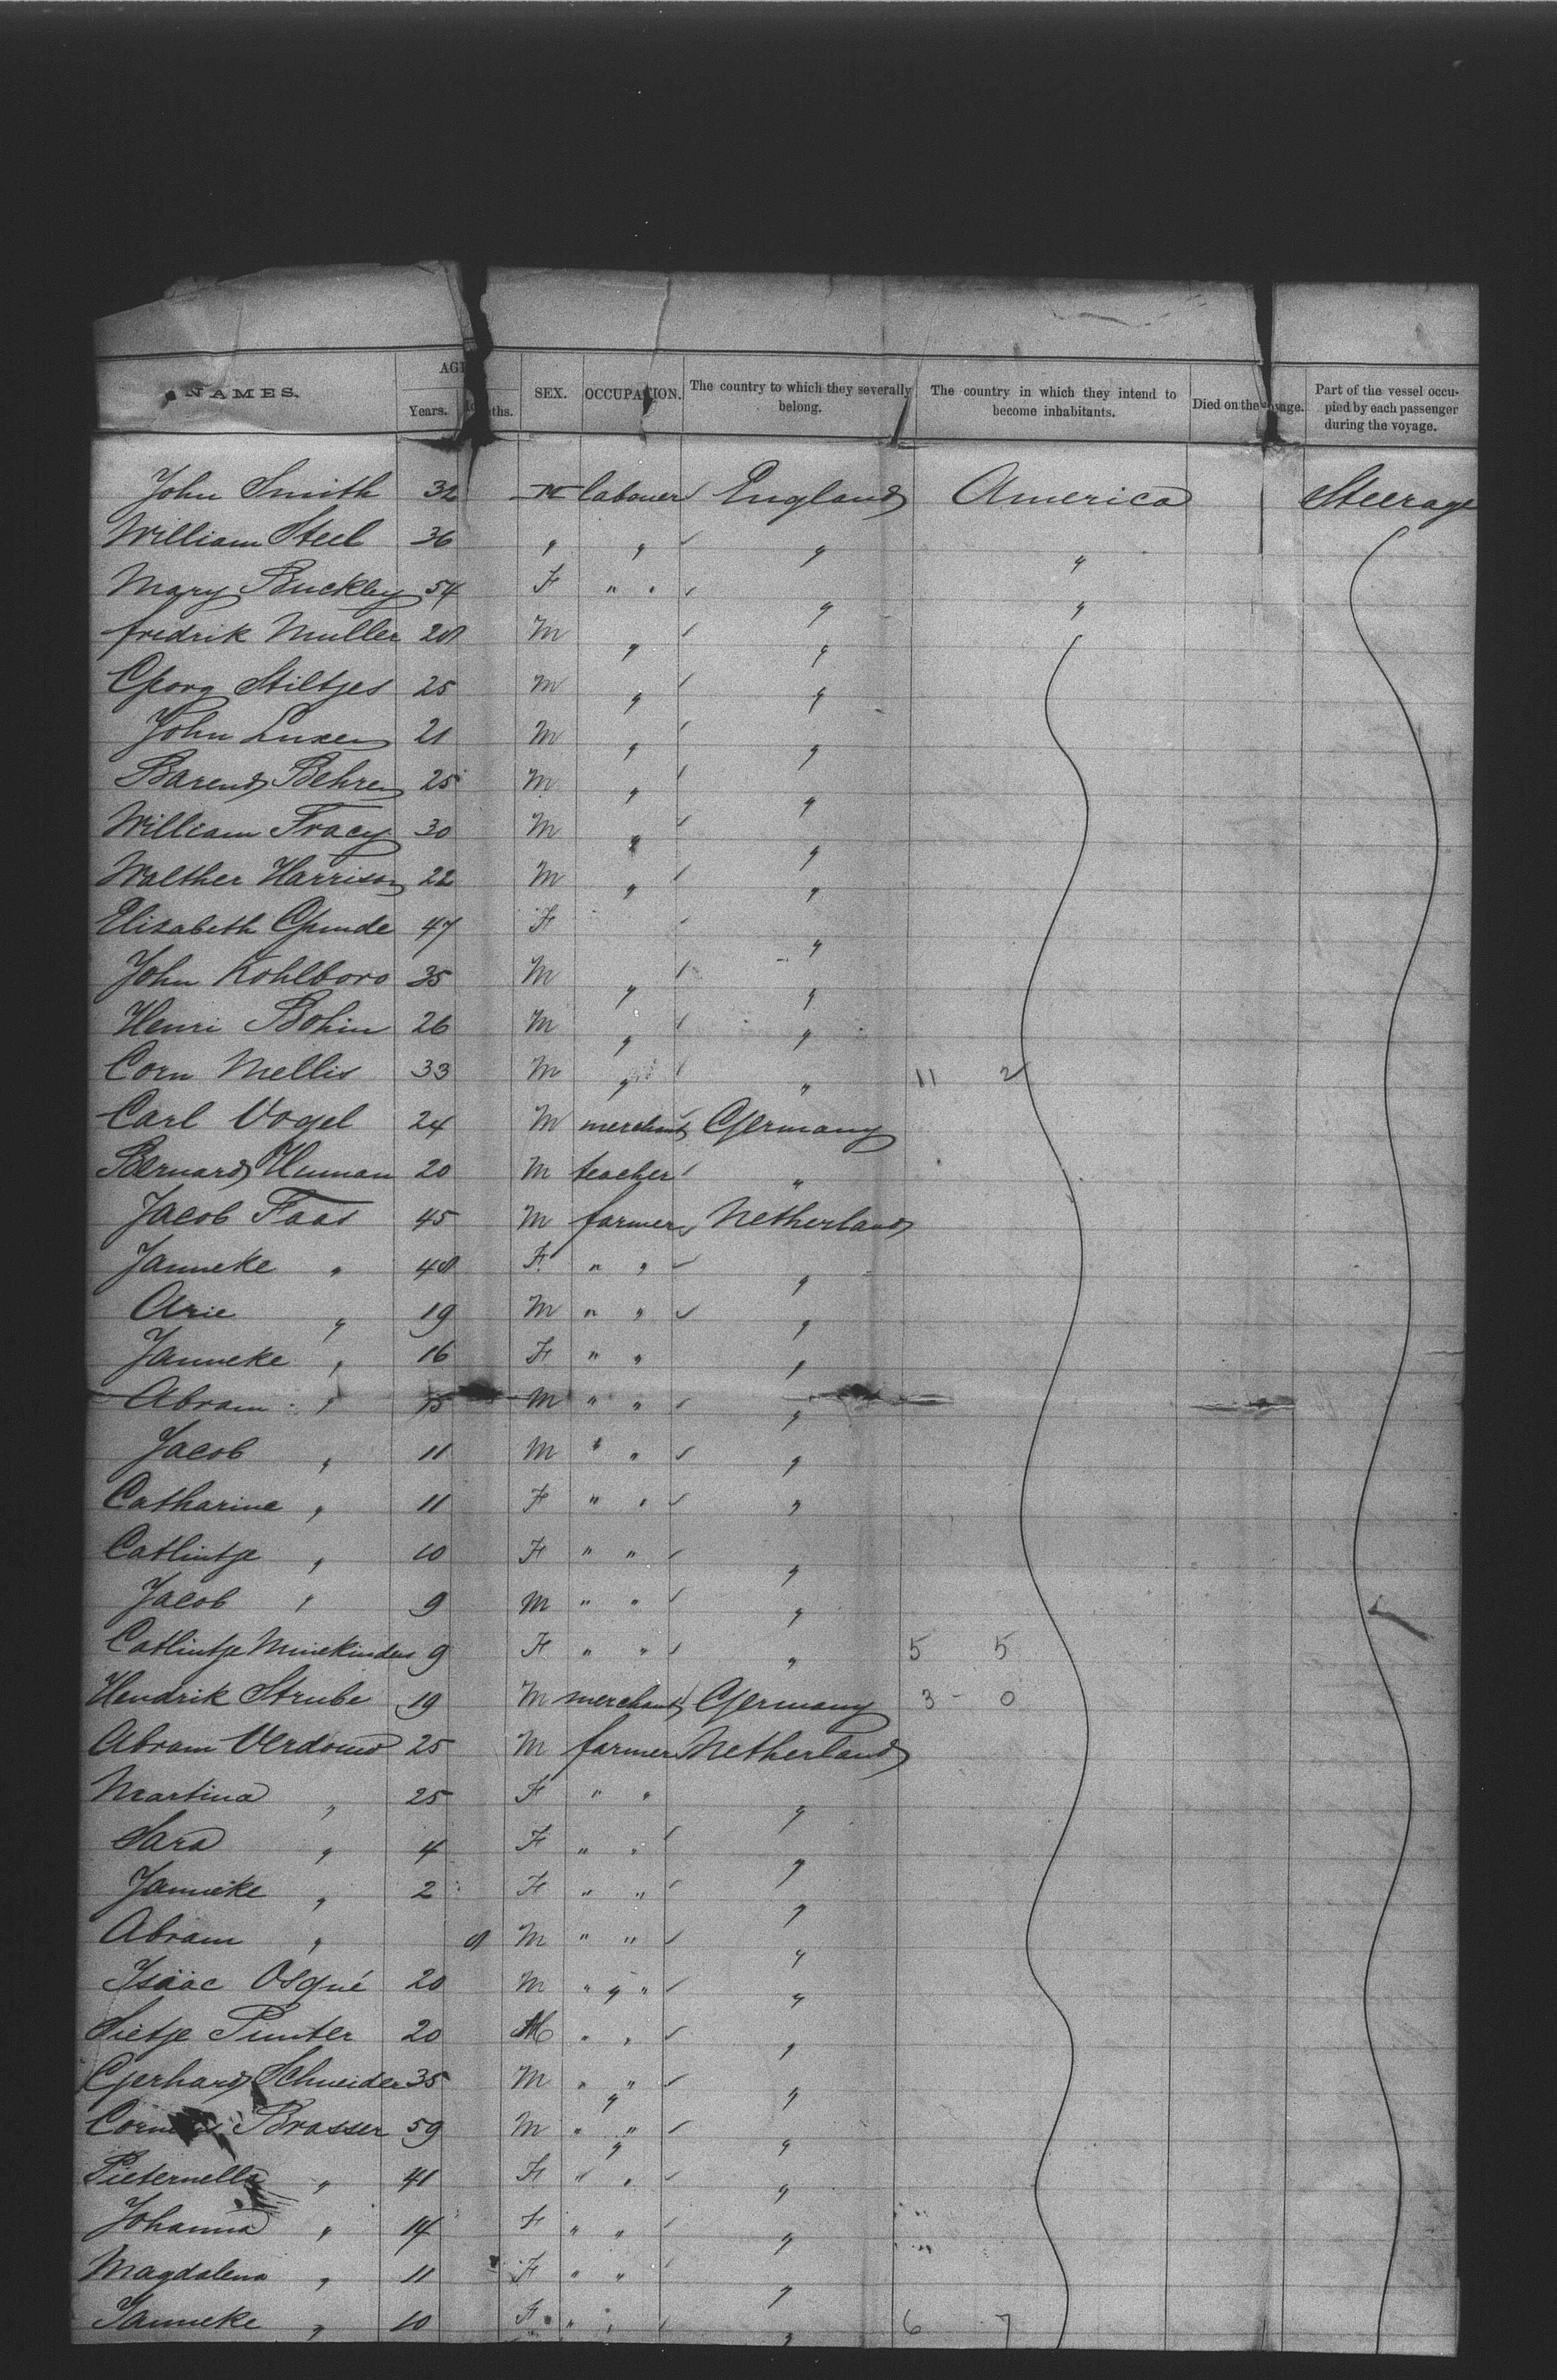 NAMES. AGE Years. Months. SEX. OCCUPATION. The country to which they severally belong. The country in which they intend to become inhabitants. Died on the voyage. Part of the vessel occupied by each passenger during the voyage.
John Smith 32 M labourer England America Steerage
William Steel 36 " " " "
Mary Buckley 54 F " " " "
fredrik Muller 28 M " "
Georg Stiltjes 25 M " "
John Luxen 21 M " "
Barend Behren 25 M " "
William Tracy 30 M " "
Walther Harrison 22 M " "
Elisabeth Gunde 47 F "
John Kohlboro 35 M " "
Henri Bohin 26 M " "
Corn Mellis 33 M " " 11 2
Carl Vogel 24 M merchant Germany
Bernard Human 20 M teacher "
Jacob Faas 45 M farmer Netherland
Janneke " 48 F " " "
Arie " 19 M " " "
Janneke " 16 F " " "
Abram " 15 M " " "
Jacob " 11 M " " "
Catharine " 11 F " " "
Catlintje " 10 F " " "
Jacob " 9 M " " "
Catlintje Minekinders 9 F " " " 5 5
Hendrik Strube 19 M merchant Germany 3 - 0
Abram Verdouw 25 M farmer Netherland
Martina " 25 F " " "
Sara " 4 F " " "
Janneke " 2 F " " "
Abram " 8 M " " "
Isäac Osqué 20 M " " " "
Sietje Punter 20 M " " "
Gerhard Schneider 35 M " " " "
Cornelis Brasser 59 M " " " "
Pieternella " 41 F " " "
Johanna " 14 F " " "
Magdalena " 11 F " " "
Janneke " 10 F " " " 6 7